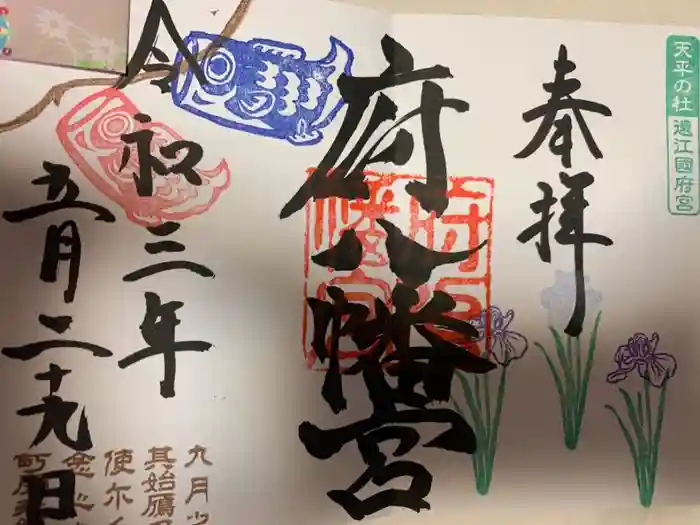 天平の杜 遠江國府宮
奉拝
府八幡宮
府八幡宮
令和三年
五月二十九日
九月
其始鷹
使尓